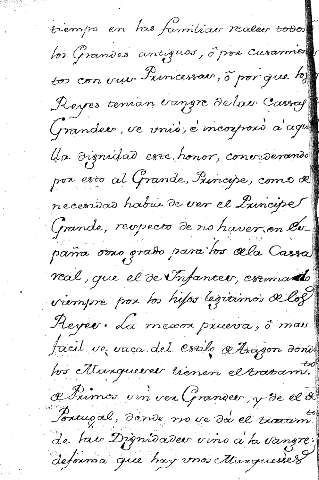 tiempo en las familias reales todos
los Grandes antiguos, ó por casamien
tos con sus Princesas, ó por que los
Reyes tenian sangre de las Cassas
Grandes, se unió, é incorporó á aque
lla dignidad este honor, considerando
por esto al Grande, Principe, como de
necesidad habia de ser el Principe
Grande, respecto de no haver en Es
paña otro grado para los de la Cassa
real, que el de Infantes, estimado
siempre por los hijos legitimos de los
Reyes. La mexor prueva, ó mas
facil se saca del estilo de Aragon donde
los Marqueses tienen el tratamto
de Primos sin ser Grandes, y de el de
Portugal, donde no se dá el tratamto
de las Dignidades sino á la sangre:
deforma que hay unos Marqueses